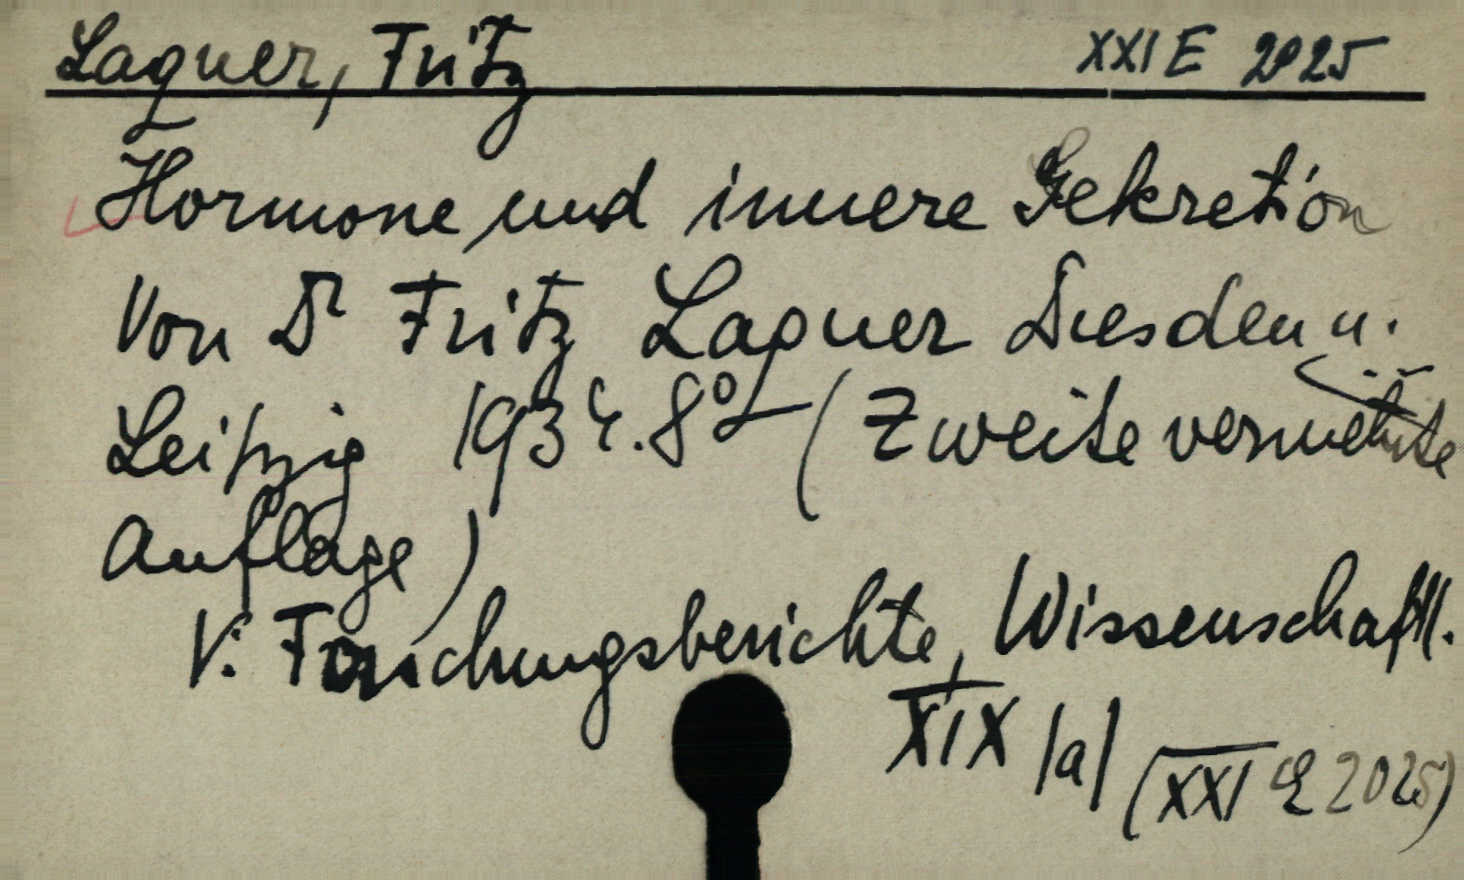 Laquer, Fritz XXI E 2025
Hormone und innere Sekretion
Von Dr Fritz Laquer Dresden u.
Leipzig 1934. 8° (Zweite vermehrte
Auflage)
V. Forschungsberichte, Wissenschaftl.
XIX |a| (XXI E 2025)